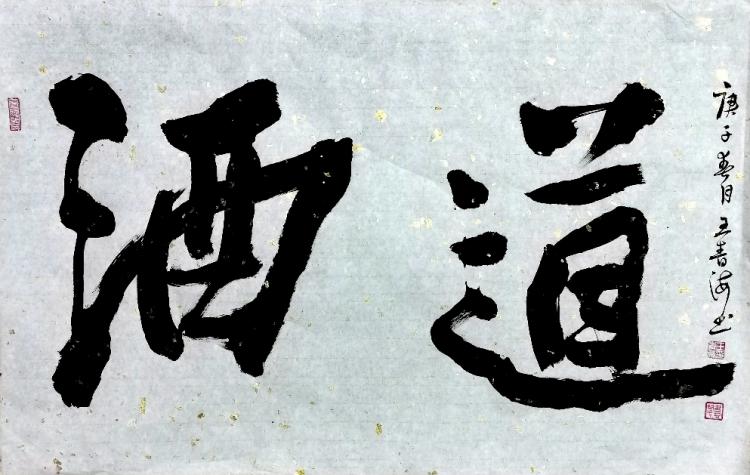 酒道
庚子春月 王青海书